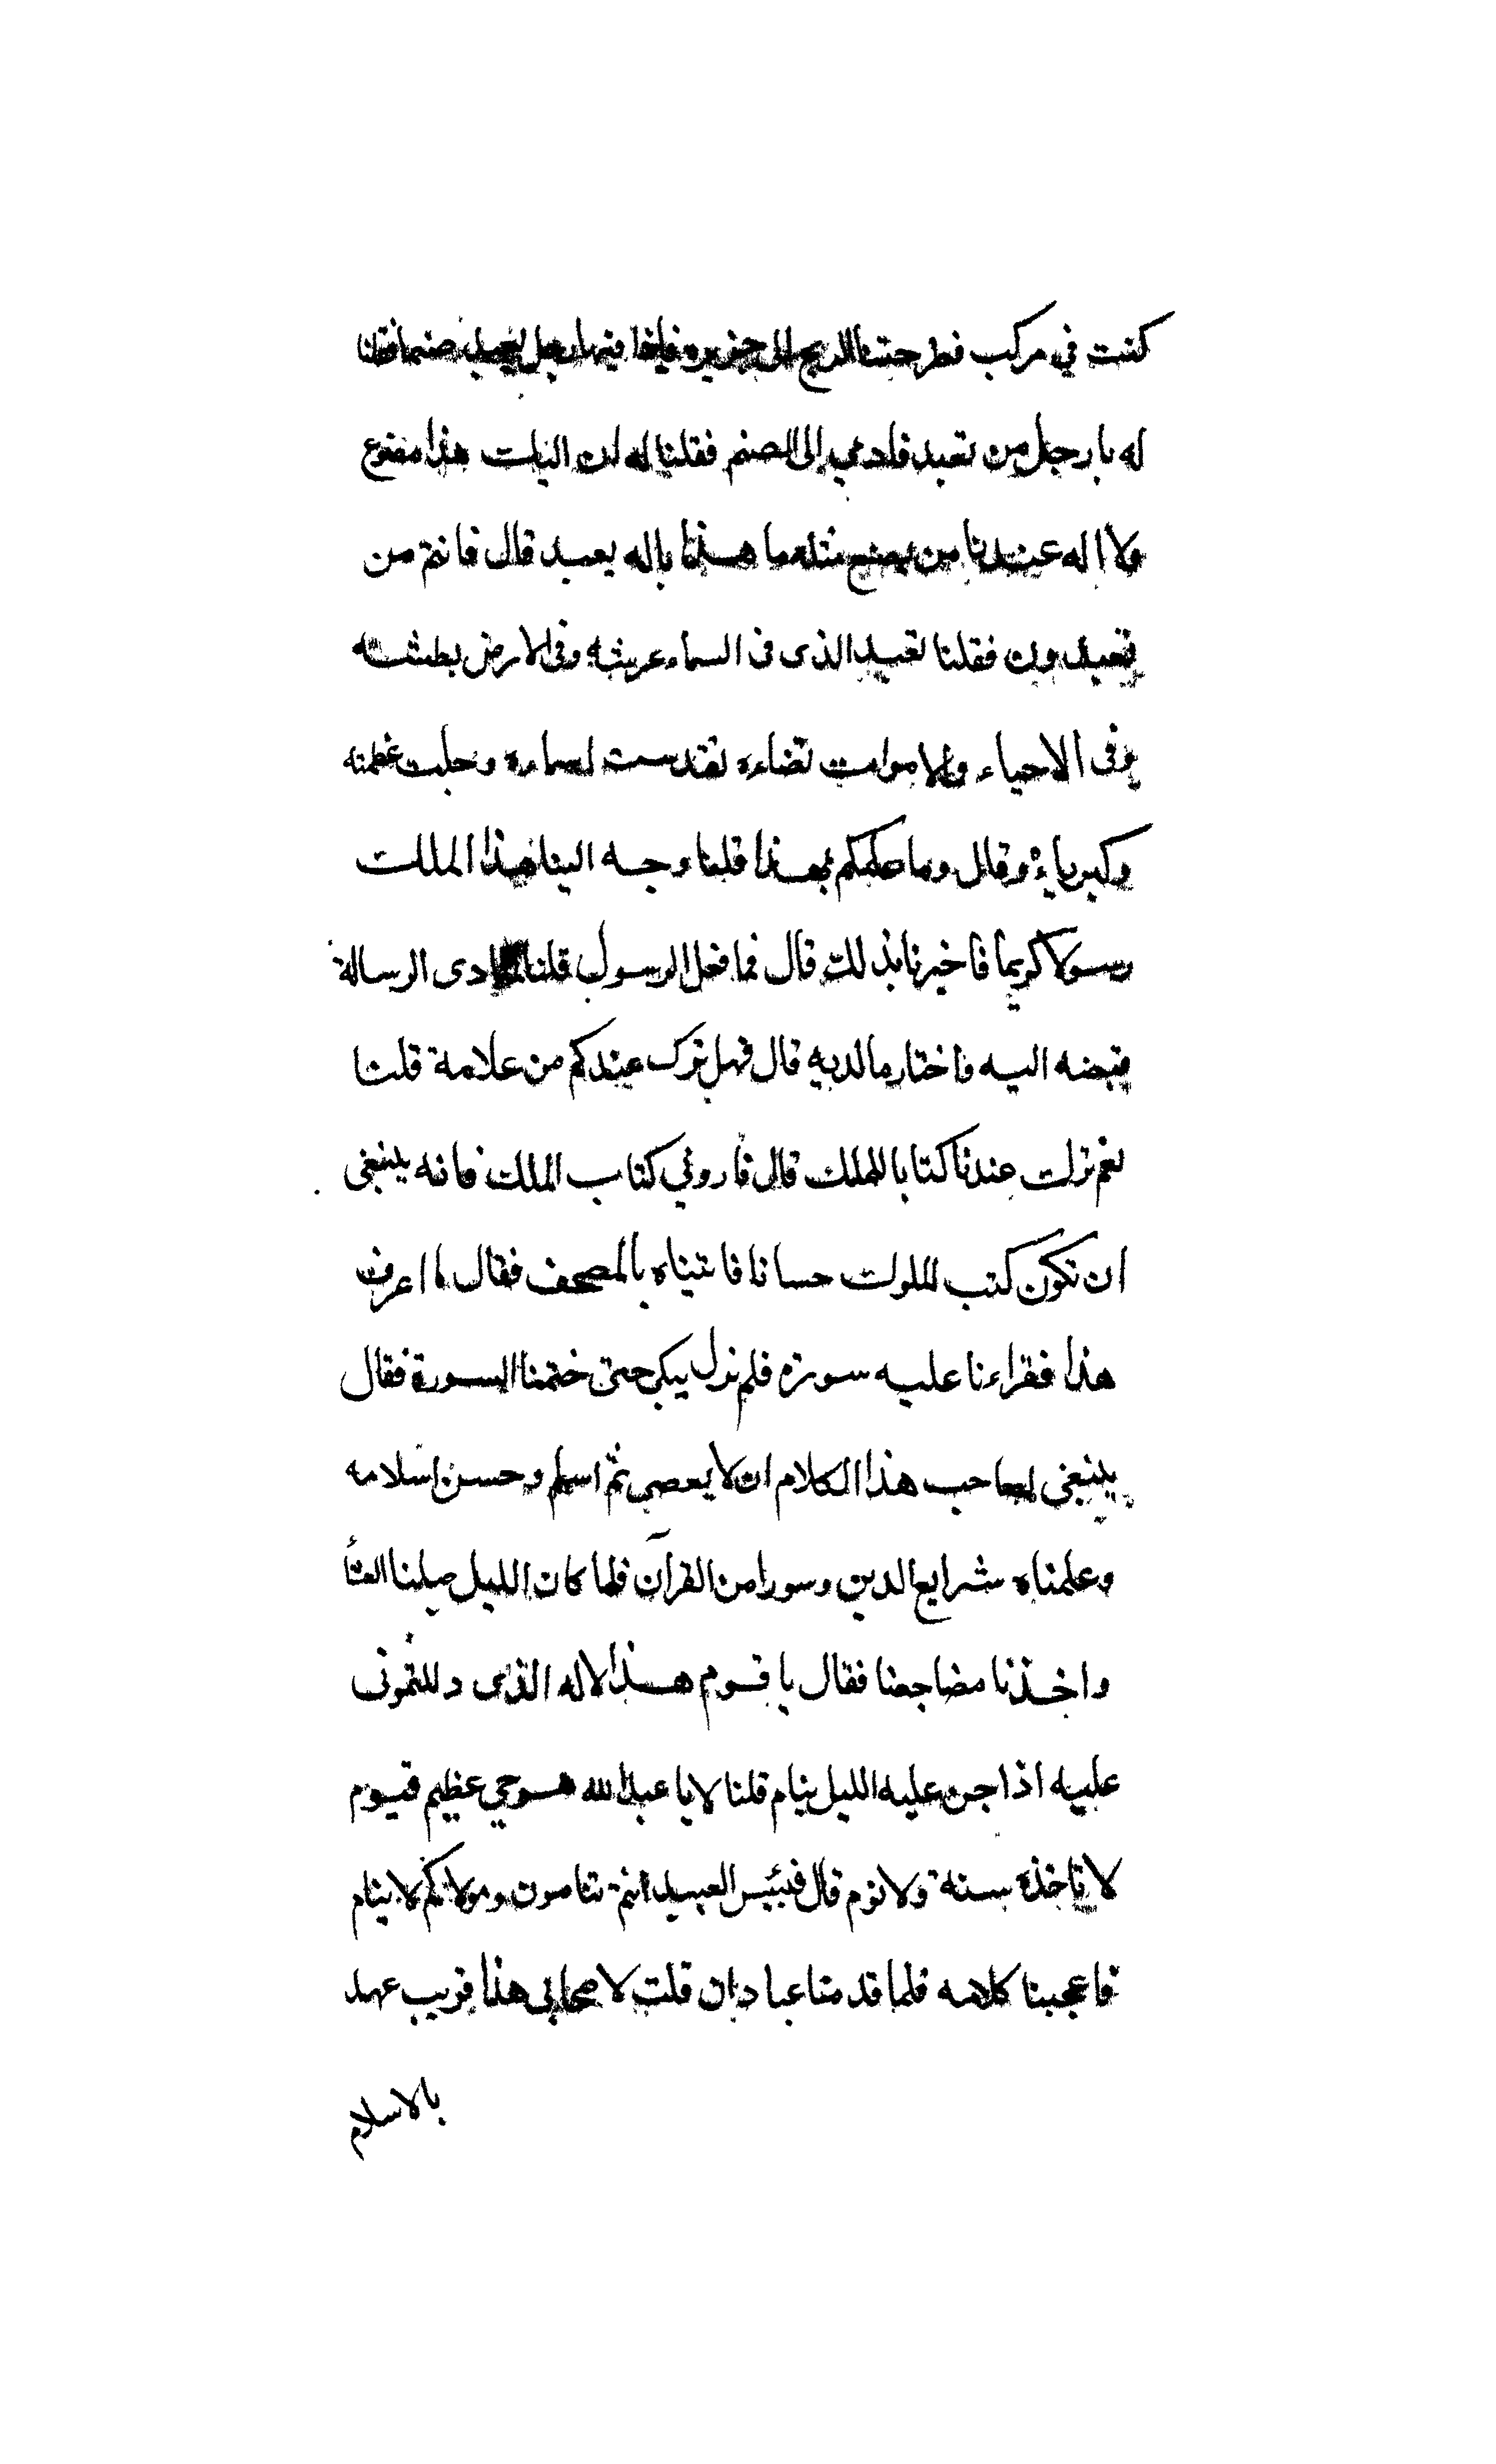 كنت في مركب فطرحتنا الريح الى جزيره فاذا فيها رجل يعبد صنما فقلنا
له يا رجل من تعبد فاومي الى الصنم فقلنا له ان الهك هذا مصنوع
ولا اله عندنا من يصنع مثله ما هذا باله يعبد قال فانتم من
تعبدون فقلنا نعبد الذى فى السماء عرشه وفى الارض بطشه
وفى الاحياء والاموات قضاءه تقدست اسماءه وجلت عظمته
وكبرياءه وقال وما علمكم بهذا قلنا وجه الينا هذا الملك
رسولا كريما فاخبرنا بذلك قال فما فعل الرسول قلنا ادى الرسالة
قبضه اليه فاختار ما لديه قال فهل ترك عندكم من علامة قلنا
نعم ترك عندنا كتابا للملك قال فاروني كتاب الملك فانه ينبغى
ان تكون كتب الملوك حسانا فاتيناه بالمصحف فقال ما اعرف
هذا فقراءنا عليه سورة فلم نزل يبكى حتى ختمنا السورة فقال
ينبغى لصاحب هذا الكلام ان لا يعصى ثم اسلم وحسن اسلامه
وعلمناه شرايع الدين وسورا من القرآن فلما كان الليل صلينا العشأ
واخذنا مضاجعنا فقال يا قوم هذا لاله الذى دللتمونى
عليه اذا جن عليه الليل ينام قلنا لا يا عبد الله هو حي عظيم قيوم
لا تاخذه سنة ولا نوم قال فبئيس العبيد انتم تنامون ومولاكم لا ينام
فاعجبنا كلامه فلما قدمنا عبادان قلت لاصحابى هذا قريب عهد
بالاسلام